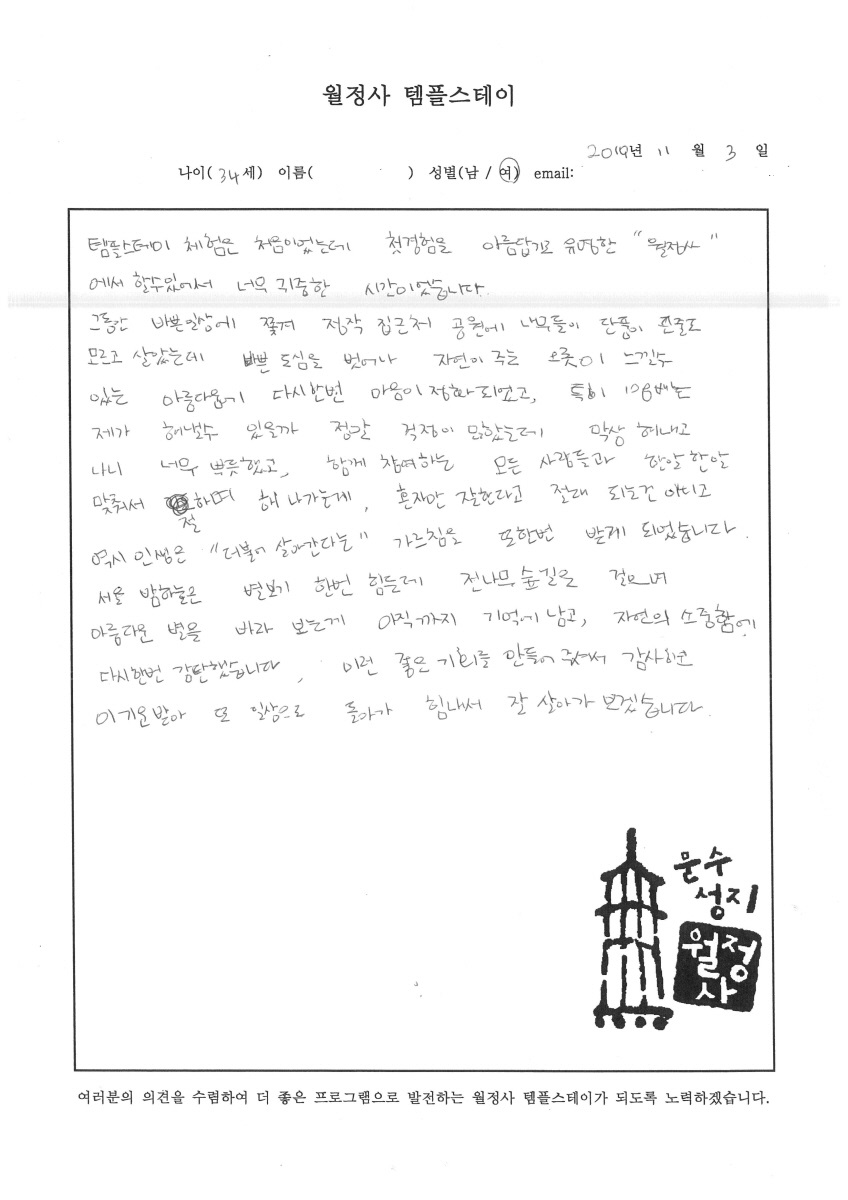 월정사 템플스테이
2019년 11 월 3 일
나이( 34 세) 이름( ) 성별(남 / 여) email:
템플스테이 체험은 처음이었는데 첫경험을 아름답기로 유명한 "월정사"
에서 할수있어서 너무 귀중한 시간이었습니다.
그동안 바쁜일상에 쫓겨 정작 집근처 공원에 나무들이 단풍이 진줄도
모르고 살았는데 바쁜 도심을 벗어나 자연이 주는 오롯이 느낄수
있는 아름다움에 다시한번 마음이 정화되었고, 특히 108배는
제가 해낼수 있을까 정말 걱정이 많았는데 막상 해내고
나니 너무 뿌듯했고, 함께 참여하는 모든 사람들과 한알한알
맞춰서 절하며 해 나가는게, 혼자만 잘한다고 절대 되는건 아니고
역시 인생은 "더불어 살아간다는" 가르침을 또한번 받게 되었습니다.
서울 밤하늘은 별보기 한번 힘든데 전나무 숲길을 걸으며
아름다운 별을 바라 보는게 아직까지 기억에 남고, 자연의 소중함에
다시한번 감탄했습니다, 이런 좋은 기회를 만들어 주셔서 감사하고
이기운받아 또 일상으로 돌아가 힘내서 잘 살아가 보겠습니다.
문수
성지
월정
사
여러분의 의견을 수렴하여 더 좋은 프로그램으로 발전하는 월정사 템플스테이가 되도록 노력하겠습니다.